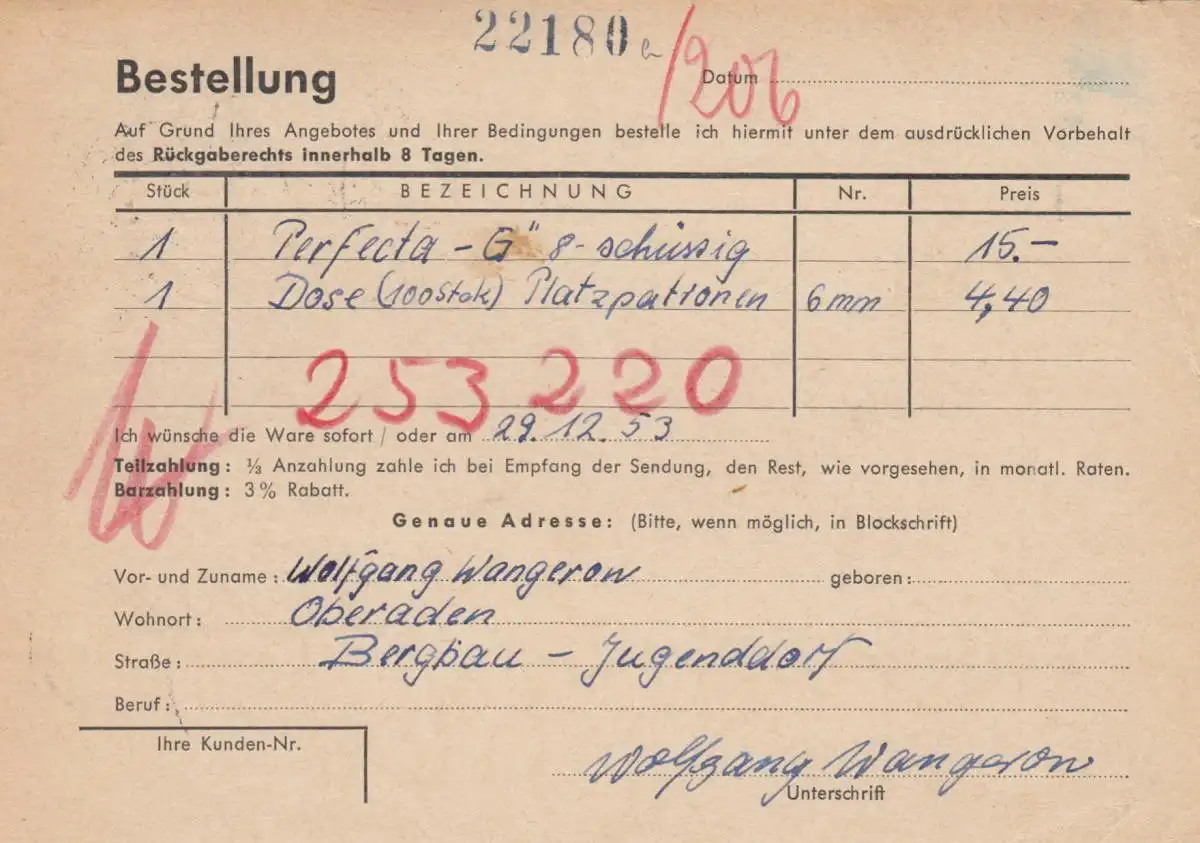 22180 a /206
Bestellung Datum
Auf Grund Ihres Angebotes und Ihrer Bedingungen bestelle ich hiermit unter dem ausdrücklichen Vorbehalt
des Rückgaberechts innerhalb 8 Tagen.
Stück BEZEICHNUNG Nr. Preis
1 Perfecta - G" 8-schüssig 15.-
1 Dose (100Stck) Platzpatronen 6mm 4,40
253220
Ich wünsche die Ware sofort / oder am 29.12.53
Teilzahlung: ⅓ Anzahlung zahle ich bei Empfang der Sendung, den Rest, wie vorgesehen, in monatl. Raten.
Barzahlung: 3% Rabatt.
Genaue Adresse: (Bitte, wenn möglich, in Blockschrift)
Vor- und Zuname: Wolfgang Wangerow geboren:
Wohnort: Oberaden
Straße: Bergbau - Jugenddorf
Beruf:
Ihre Kunden-Nr.
Wolfgang Wangerow
Unterschrift